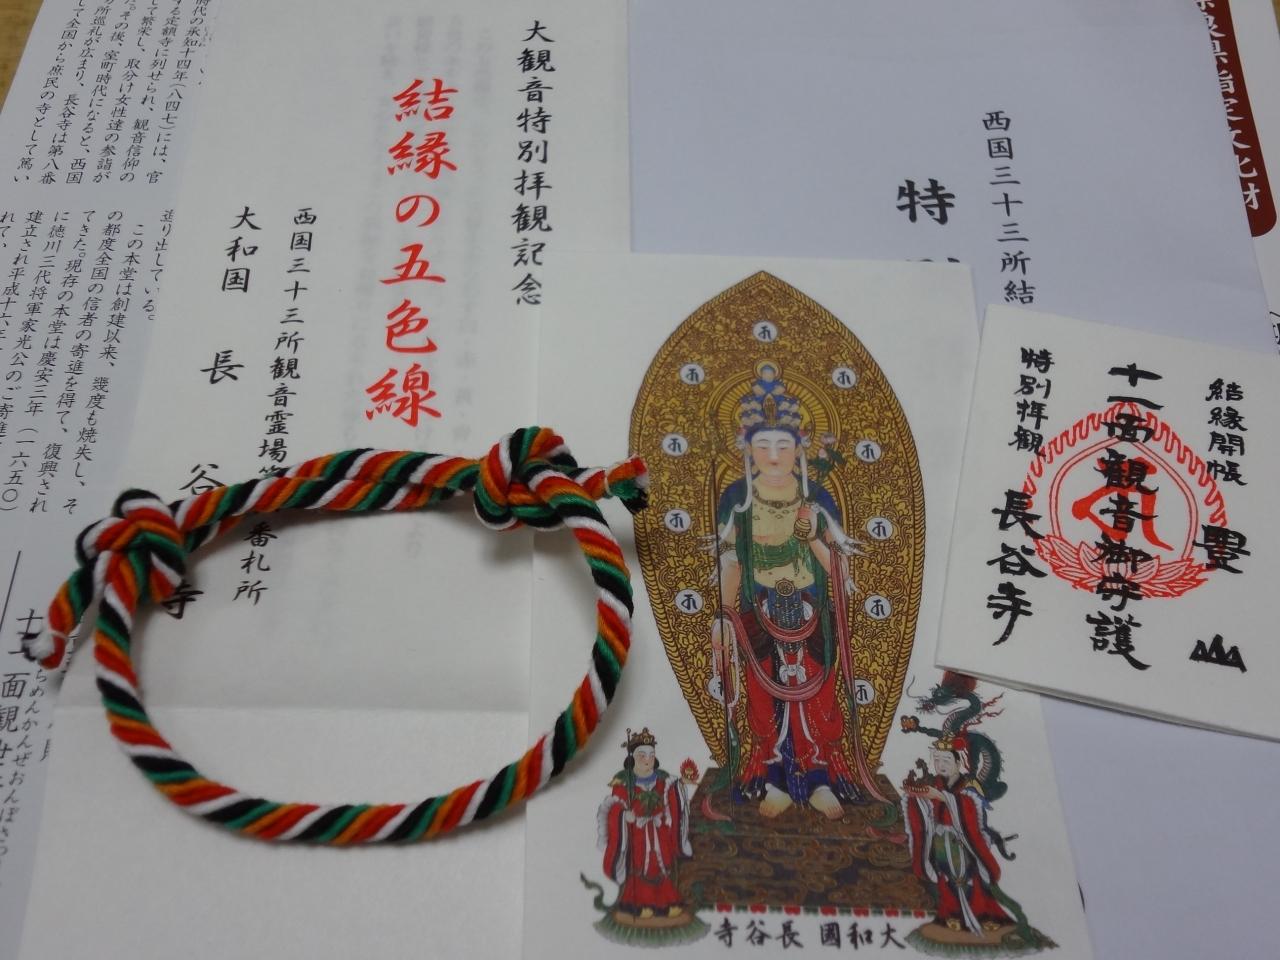 大観音特別拝観記念
結縁の五色線
西国三十三所観音霊場第
番札所
大和国 長谷寺
西国三十三所結
特
結縁開帳 豊山
十一面観音御守護
特別拝観 長谷寺
大和國 長谷寺
時代の承知十四年(八四七)には、官
する定額寺に列せられ、観音信仰の
して繁栄し、取分け女性達の参詣が
た。その後、室町時代になると、西国
所巡礼が広まり、長谷寺は第八番
して全国から庶民の寺として篤い
造り出している。
この本堂は創建以来、幾度も焼失し、そ
の都度全国の信者の寄進を得て、復興され
てきた。現存の本堂は慶安三年(一六五〇)
に徳川三代将軍家光公のご寄進
建立され平成十六年
れて、
十一面観世
ちめんかんぜおんぼさつ
県指定文化財